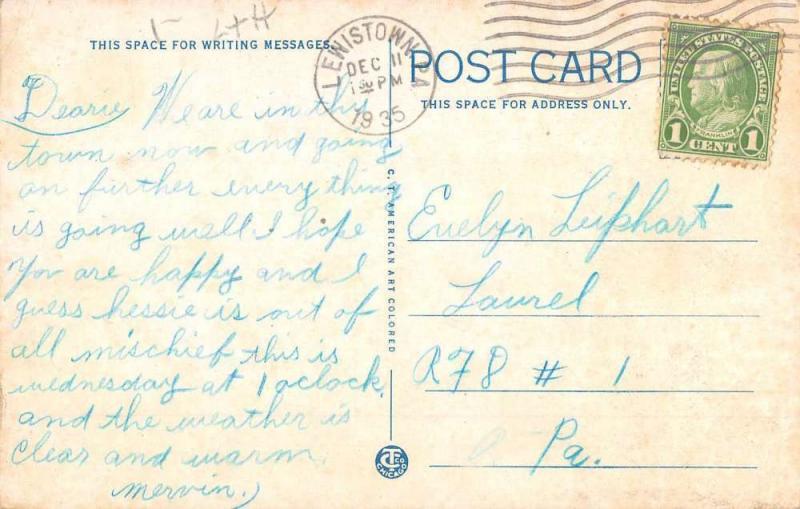 1- L+H
THIS SPACE FOR WRITING MESSAGES.
Dearie We are in this
town now and going
on further every thing
is going well I hope
You are happy and I
guess hessie is out of
all mischief this is
wednesday at 1 oclock.
and the weather is
clear and warm.
mervin.)
C. T. AMERICAN ART COLORED
C.T.CO. CHICAGO
LEWISTOWN, PA
DEC 11
1 30 PM
1935
POST CARD
THIS SPACE FOR ADDRESS ONLY.
UNITED STATES POSTAGE
FRANKLIN
1 CENT 1
Evelyn Leiphart
Laurel
R F D # 1
Pa.